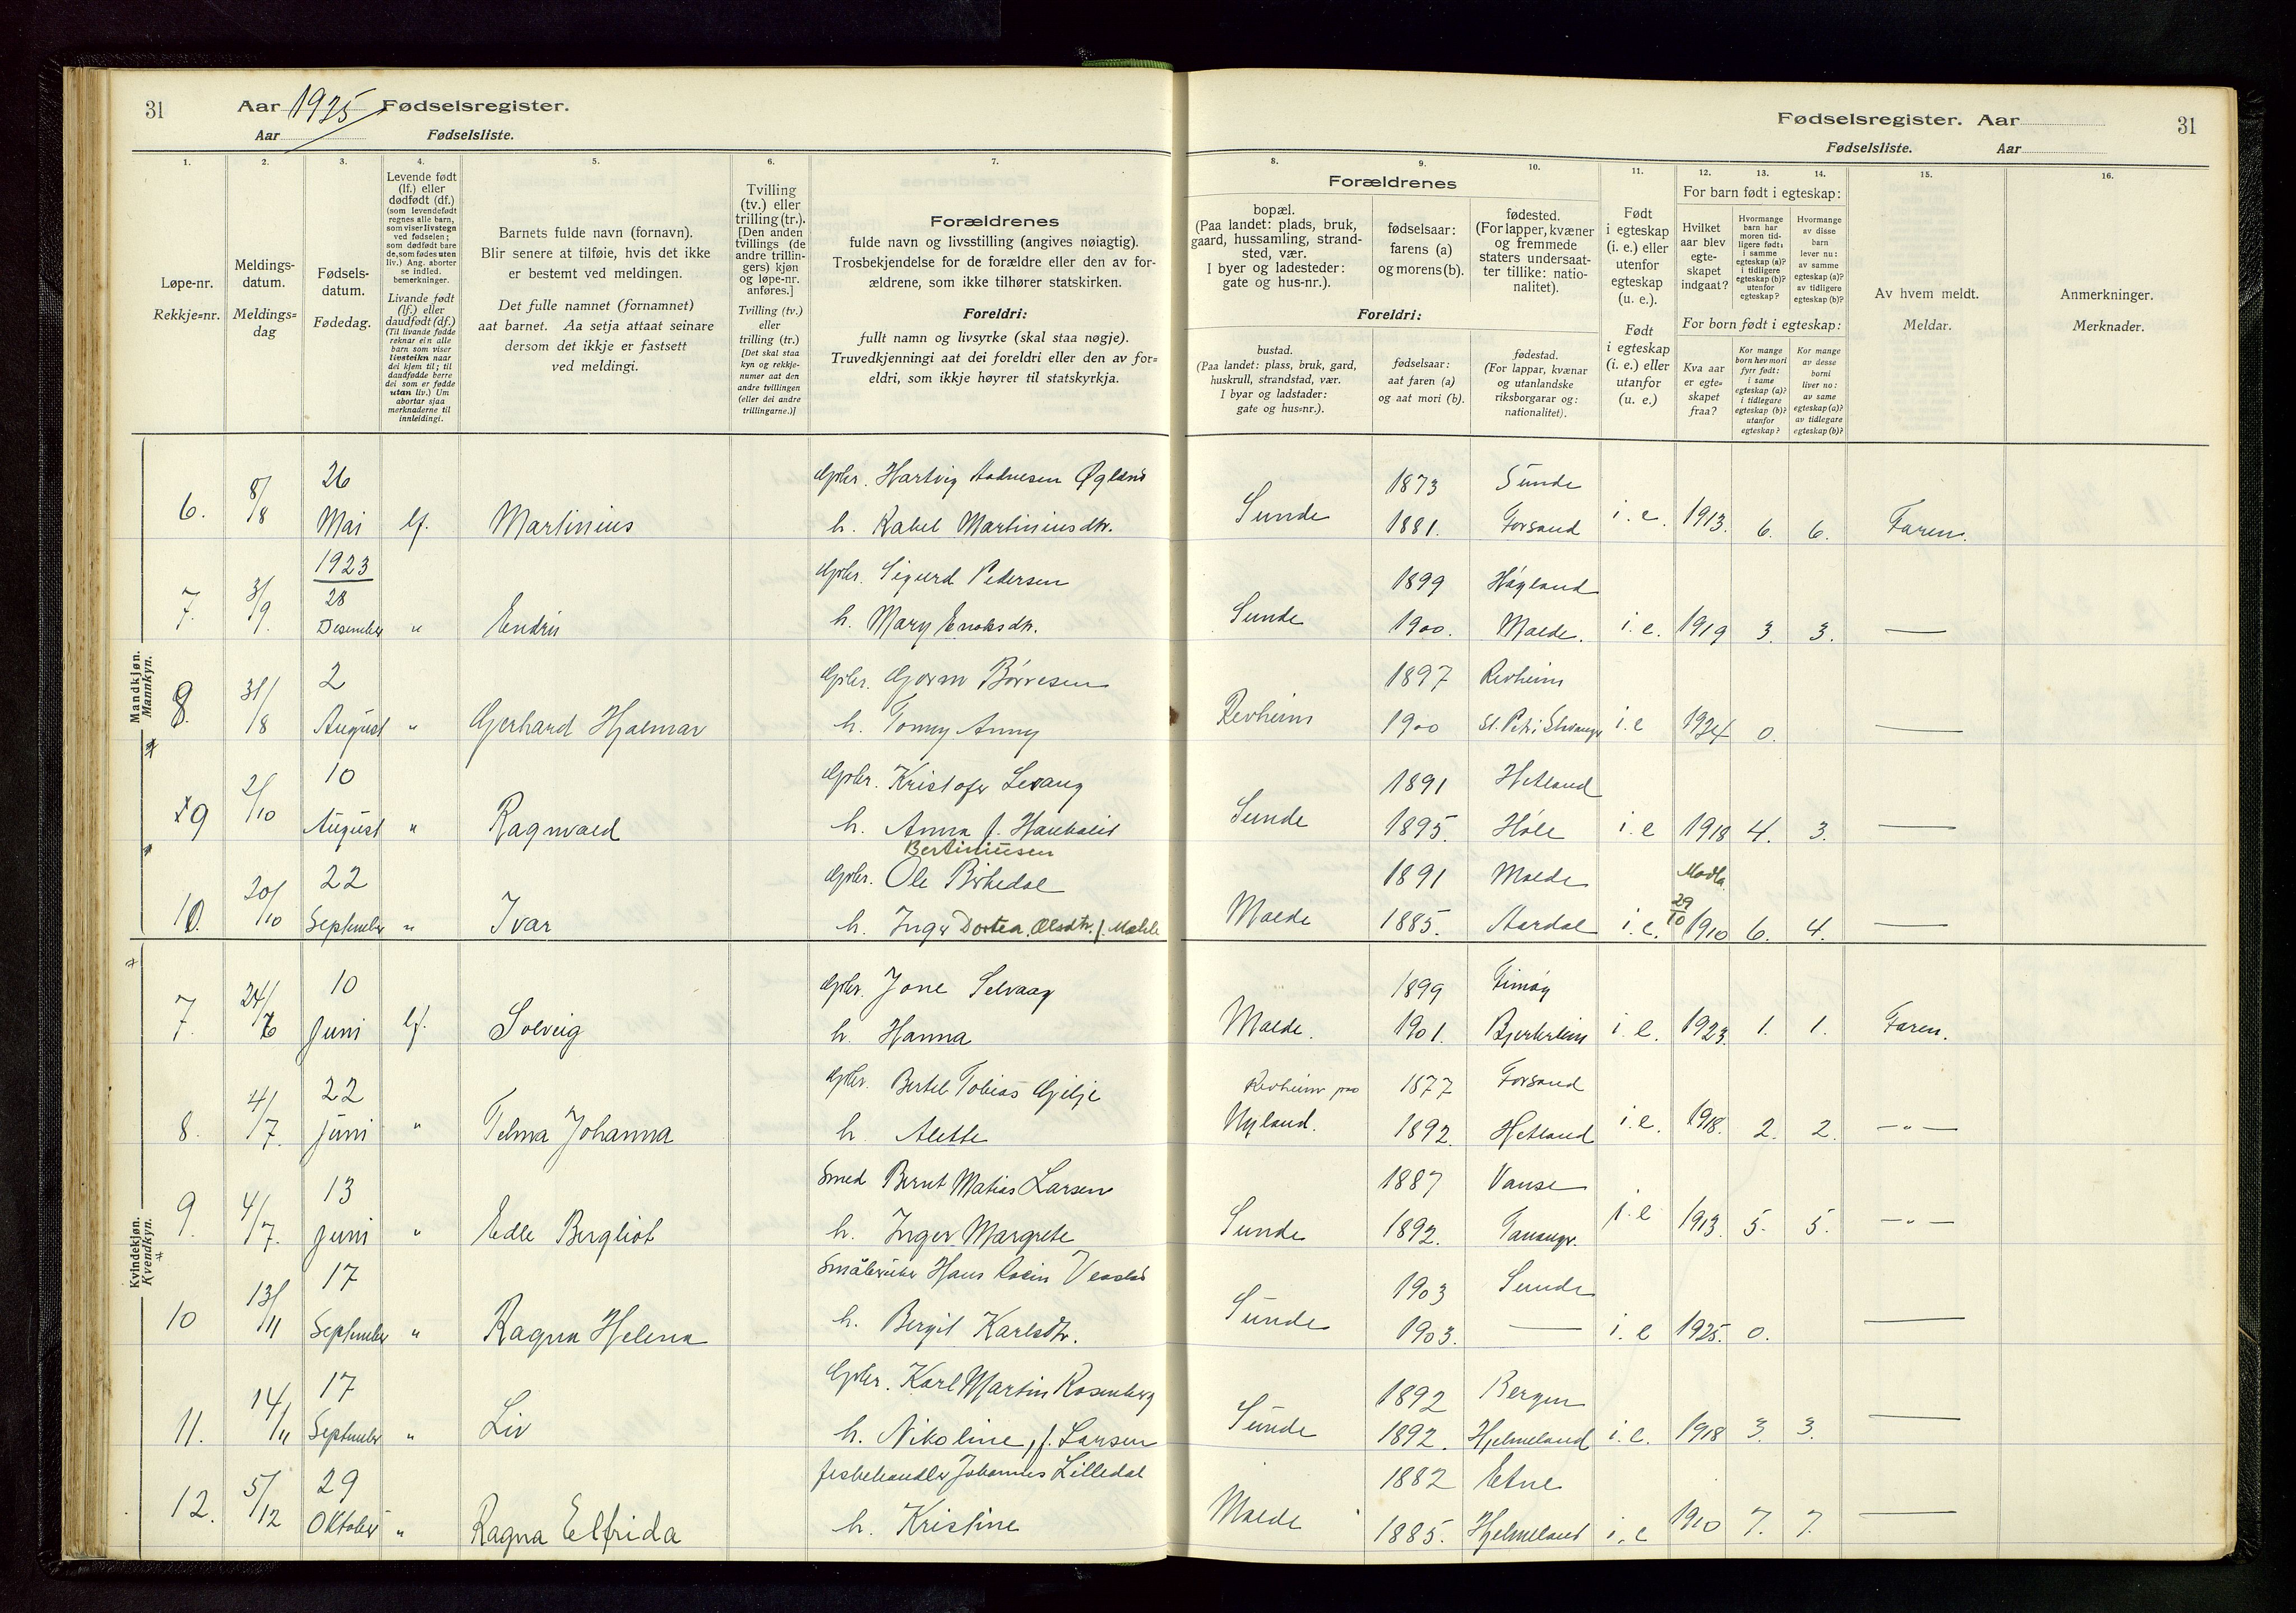 31
Aar 1925 Fødselsregister.
Aar Fødselsliste.
1.
Løpe-nr.
Rekkje-nr.
2.
Meldings-
datum.
Meldings-
dag
3.
Fødsels-
datum.
Fødedag.
4.
Levende født
(lf.) eller
dødfødt (df.)
(som levendefødt
regnes alle barn,
som viser livstegn
ved fødselen;
som dødfødt bare
de, som fødes uten
liv.) Ang. aborter
se indled.
bemerkninger.
Livande født
(lf.) eller
daudfødt (df.)
(Til livande fødde
reknar ein alle
barn som viser
livsteikn naar
dei kjem til; til
daudfødde berre
dei som er fødde
utan liv.) Um
abortar sjaa
merknaderne til
innleidingi.
5.
Barnets fulde navn (fornavn).
Blir senere at tilføie, hvis det ikke
er bestemt ved meldingen.
Det fulle namnet (fornamnet)
aat barnet. Aa setja attaat seinare
dersom det ikkje er fastsett
ved meldingi.
6.
Tvilling
(tv.) eller
trilling (tr.).
[Den anden
tvillings (de
andre trillin-
gers) kjøn
og løpe-nr.
anføres.]
Tvilling (tv.)
eller
trilling (tr.)
[Det skal staa
kyn og rekkje-
numer aat den
andre tvillingen
(eller dei andre
trillingarne.)]
7.
Forældrenes
fulde navn og livsstilling (angives nøiagtig).
Trosbekjendelse for de forældre eller den av for-
ældrene, som ikke tilhører statskirken.
Foreldri:
fullt namn og livsyrke (skal staa nøgje).
Truvedkjenningi aat dei foreldri eller den av for-
eldri, som ikkje høyrer til statskyrkja.
Fødselsregister. Aar
31
Fødselsliste. Aar
Forældrenes
8.
bopæl.
(Paa landet: plads, bruk,
gaard, hussamling, strand-
sted, vær.
I byer og ladesteder:
gate og hus-nr.).
9.
fødselsaar:
farens (a)
og morens (b).
10.
fødested.
(For lapper, kvæner
og fremmede
staters undersaat-
ter tillike: natio-
nalitet).
Foreldri:
bustad.
(Paa landet: plass, bruk, gard,
huskrull, strandstad, vær.
I byar og ladstader:
gate og hus-nr.).
fødselsaar:
aat faren (a)
og aat mori (b).
fødestad.
(For lappar, kvænar
og utanlandske
riksborgarar og:
nationalitet).
11.
Født
i egteskap
(i. e.) eller
utenfor
egteskap
(u. e.).
Født
i egteskap
(i. e.) eller
utanfor
(u. e.)
12. 13. 14.
For barn født i egteskap:
Hvilket
aar blev
egte-
skapet
indgaat?
Hvormange
barn har
moren tid-
ligere født:
i samme
egteskap (a)?
i tidligere
egteskap (b)?
utenfor
egteskap?
Hvormange
av disse
barn
lever nu:
av samme
egteskap (a)?
av tidligere
egteskap (b)?
For born født i egteskap:
Kva aar
er egte-
skapet
fraa?
Kor mange
born hev mori
fyrr født:
i same
egteskap (a)?
i tidlegare
egteskap (b)?
utanfor
egteskap?
Kor mange
av desse
borni
liver no:
av same
egteskap (a)?
av tidlegare
egteskap (b)?
15.
Av hvem meldt.
Meldar.
16.
Anmerkninger.
Merknader.
Mandkjøn.
Mannkyn.
6. 8/8 26 Mai lf. Martinius
Gbr. Hartvig Aadnesen Øgland
h. Rakel Martiniusdtr.
Sunde 1873 Sunde
1881. Forsand i. e. 1913. 6. 6. Faren.
7. 3/9. 1923 28 Desember " Endre
Gbr. Sigurd Pedersen
h. Mary Enoksdtr.
Sunde 1899 Høyland
1900. Malde. i. e. 1919 3. 3. —
8. 31/8 2 August " Gerhard Hjalmar
Gbr. Gorm Børresen
h. Tomy Anny
Revheim 1897 Revheim
1900 St. Petri Stavanger i. e 1924 0. —
9 2/10 10 August " Ragnvald
Gbr. Kristofer Levang
h. Anna f. Haukalid
Sunde 1891 Hetland
1895. Høle i. e 1918 4. 3. —
10. 20/10 22 September " Ivar
Bertiniusen
Gbr. Ole Birkedal
h. Inger Dortea Olsdtr. f. Mæhle
Malde 1891 Malde
1885. Aardal i. e. Madla 29/10 1910 6. 4. —
Kvindekjøn.
Kvendkyn.
7. 24/6 10 Juni lf. Solveig
Gbr. Jone Selvaag
h. Hanna
Malde. 1899 Finnøy
1901. Bjerkreim i. e. 1923. 1. 1. Faren.
8. 4/7. 22 Juni " Telma Johanna
Gbr. Bertel Tobias Gilje
h. Alette
Revheim paa
Nyland. 1877 Forsand
1892. Hetland i. e. 1918. 2. 2. —"—
9. 4/7. 13 Juni " Edle Bergliot
Smed Bernt Matias Larsen
h. Inger Margrete
Sunde 1887 Vanse
1892. Tananger. i. e 1913. 5. 5. —"—
10 13/11 17 September " Ragna Helena
Småbruker Hans Rasin
h. Bergit Karlsdtr.
Sunde 1903 Sunde
1903. — i. e 1925. 0. —
11. 14/11 17 September " Liv
Gbr. Karl Martin Rosenberg
h. Nikoline, f. Larsen
Sunde 1892 Bergen
1892. Hjelmeland i. e. 1918 3. 3. —
12. 5/12 29 Oktober " Ragna Elfrida
fiskehandler Johannes Lilledal
h. Kristine
Malde 1882 Etne
1885. Hjelmeland i. e 1910 7. 7. —